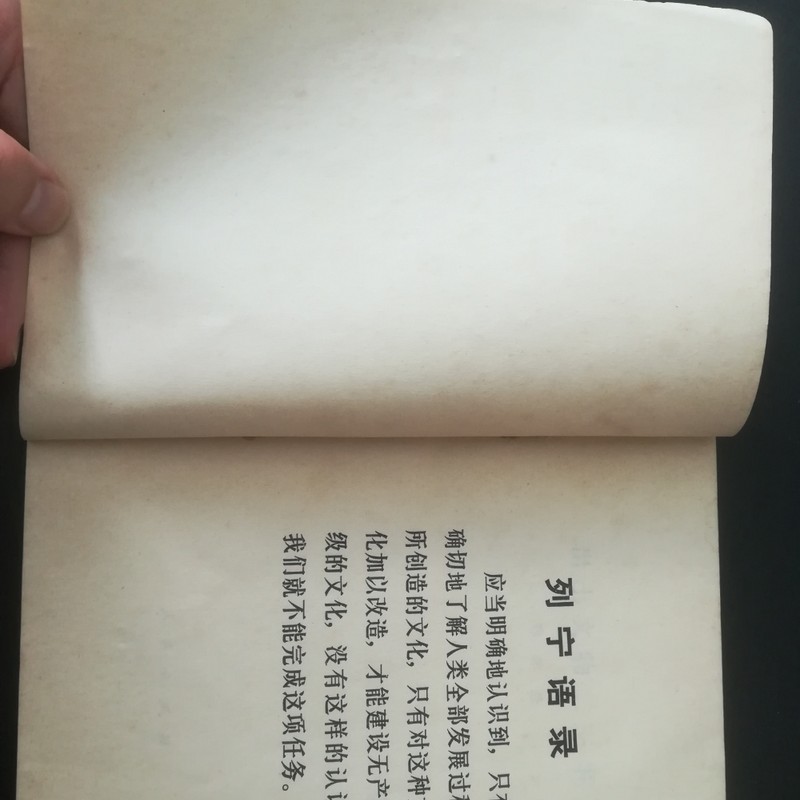 列宁语录
应当明确地认识到，只有
确切地了解人类全部发展过程
所创造的文化，只有对这种
化加以改造，才能建设无产
级的文化，没有这样的认识
我们就不能完成这项任务。